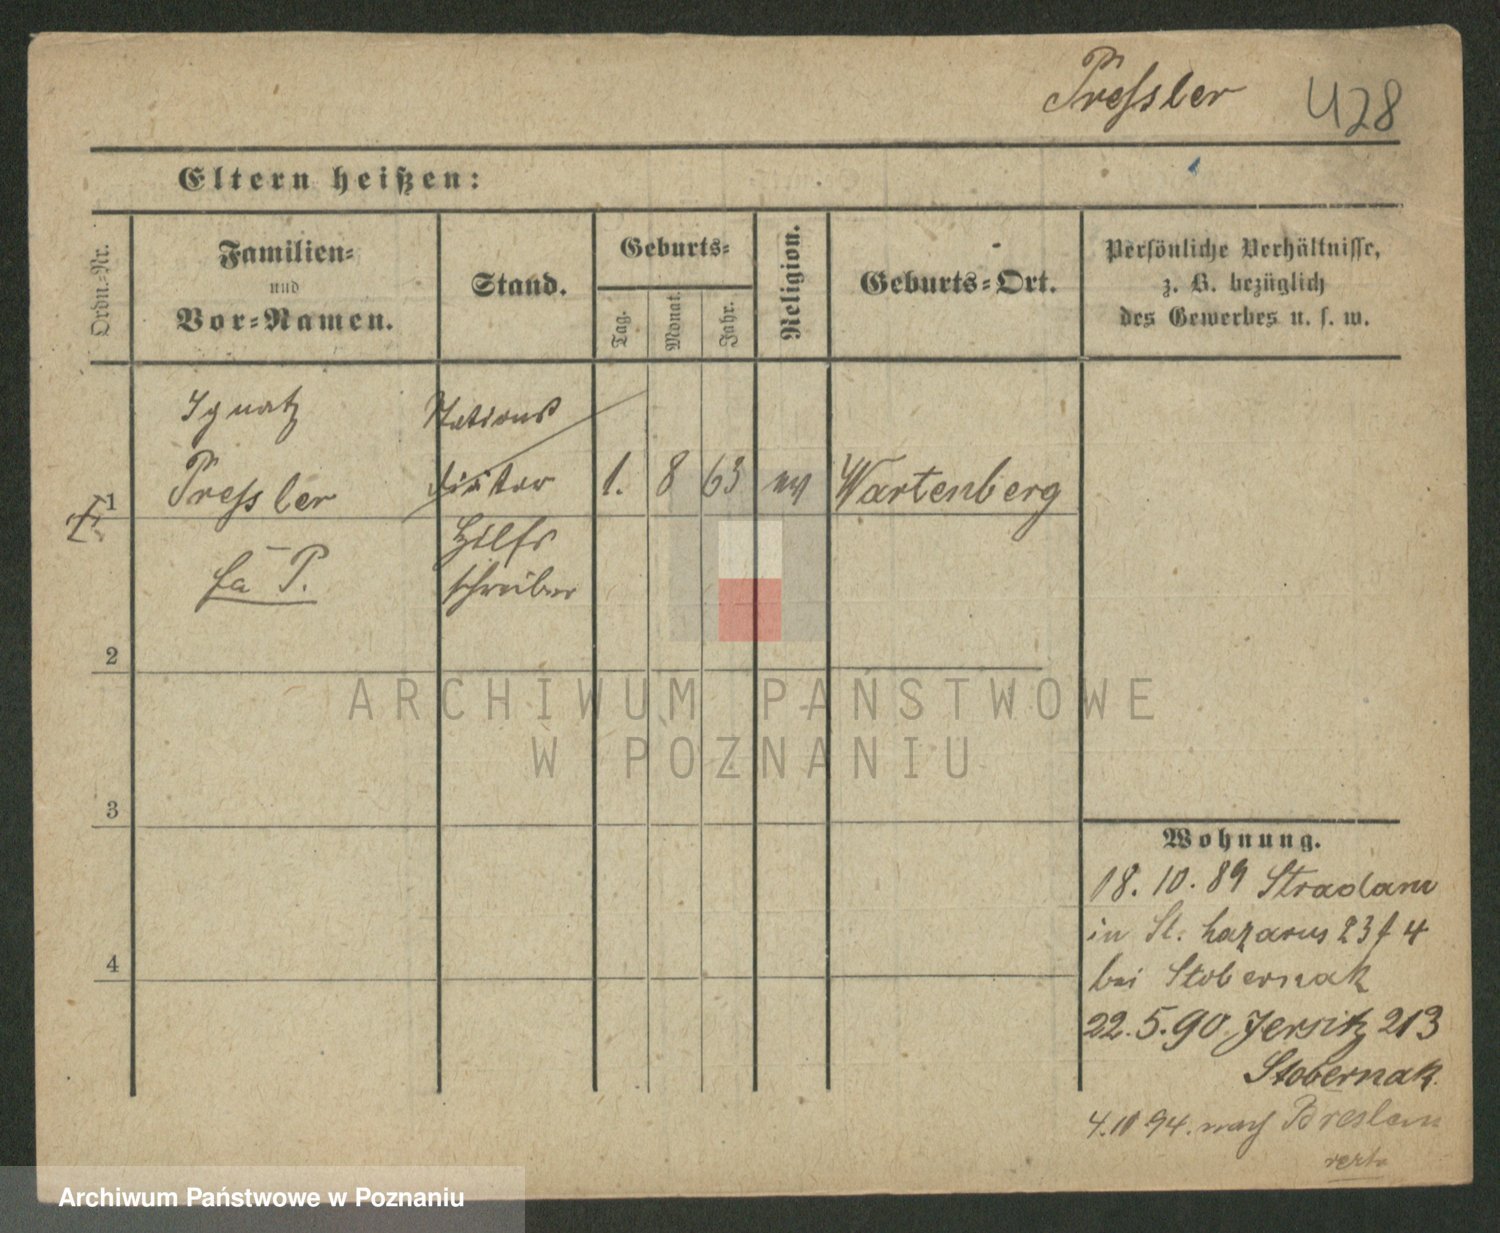 Preſsler 428
Eltern heißen:
Ordn.-Nr.
Familien-
und
Vor-Namen.
Stand.
Geburts-
Tag.
Monat.
Jahr.
Religion.
Geburts-Ort.
Persönliche Verhältnisse,
z. B. bezüglich
des Gewerbes u. s. w.
Ignatz
Stations
1 Preſsler
1. 8 63 ev Wartenberg
Hilfs
P.
schreiber
2
ARCHIWUM PAŃSTWOWE
W POZNANIU
3
Wohnung.
18. 10. 89 Stradam
in St. Lazarus 23 f 4
4
bei Stobernak
22. 5. 90 Jersitz 213
Stobernak.
4. 10 94. nach Breslau
Archiwum Państwowe w Poznaniu